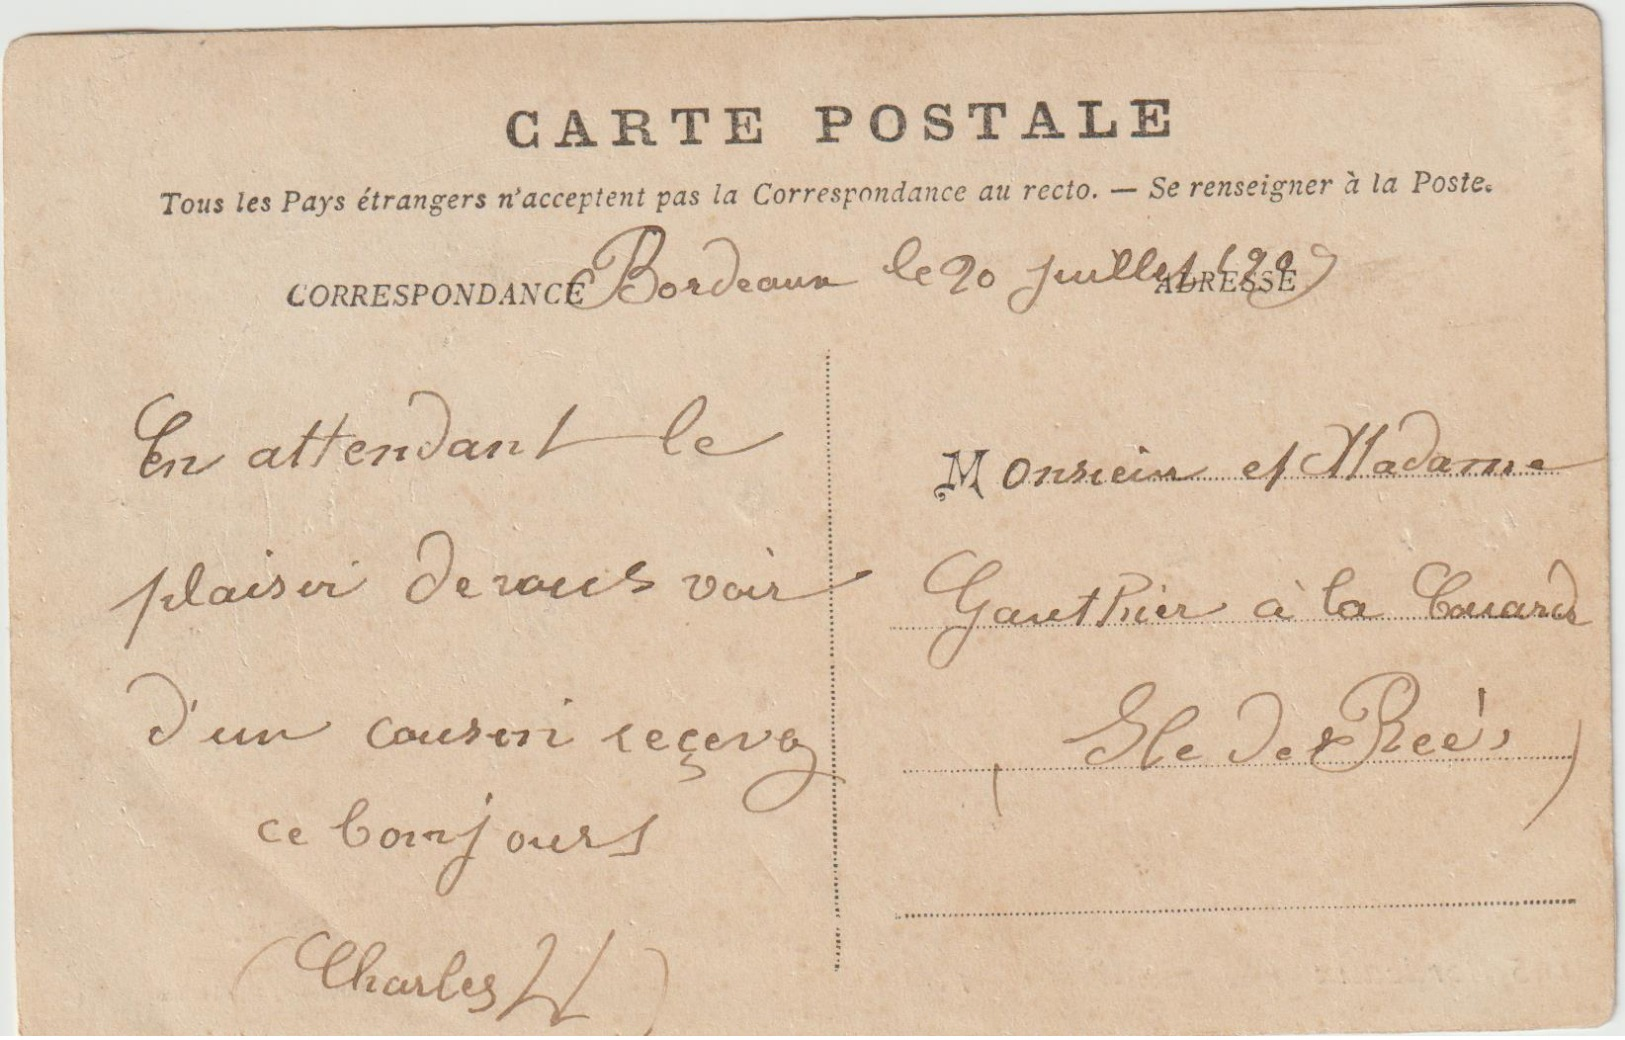 CARTE POSTALE
Tous les Pays étrangers n'acceptent pas la Correspondance au recto. — Se renseigner à la Poste.
CORRESPONDANCE
ADRESSE
Bordeaux le 20 juillet
En attendant le
plaisir de vous voir
d'un cousin reçevez
ce bonjours
(Charles
Monsieur et Madame
Gauthier à la Couarde
(Ile de Reé)